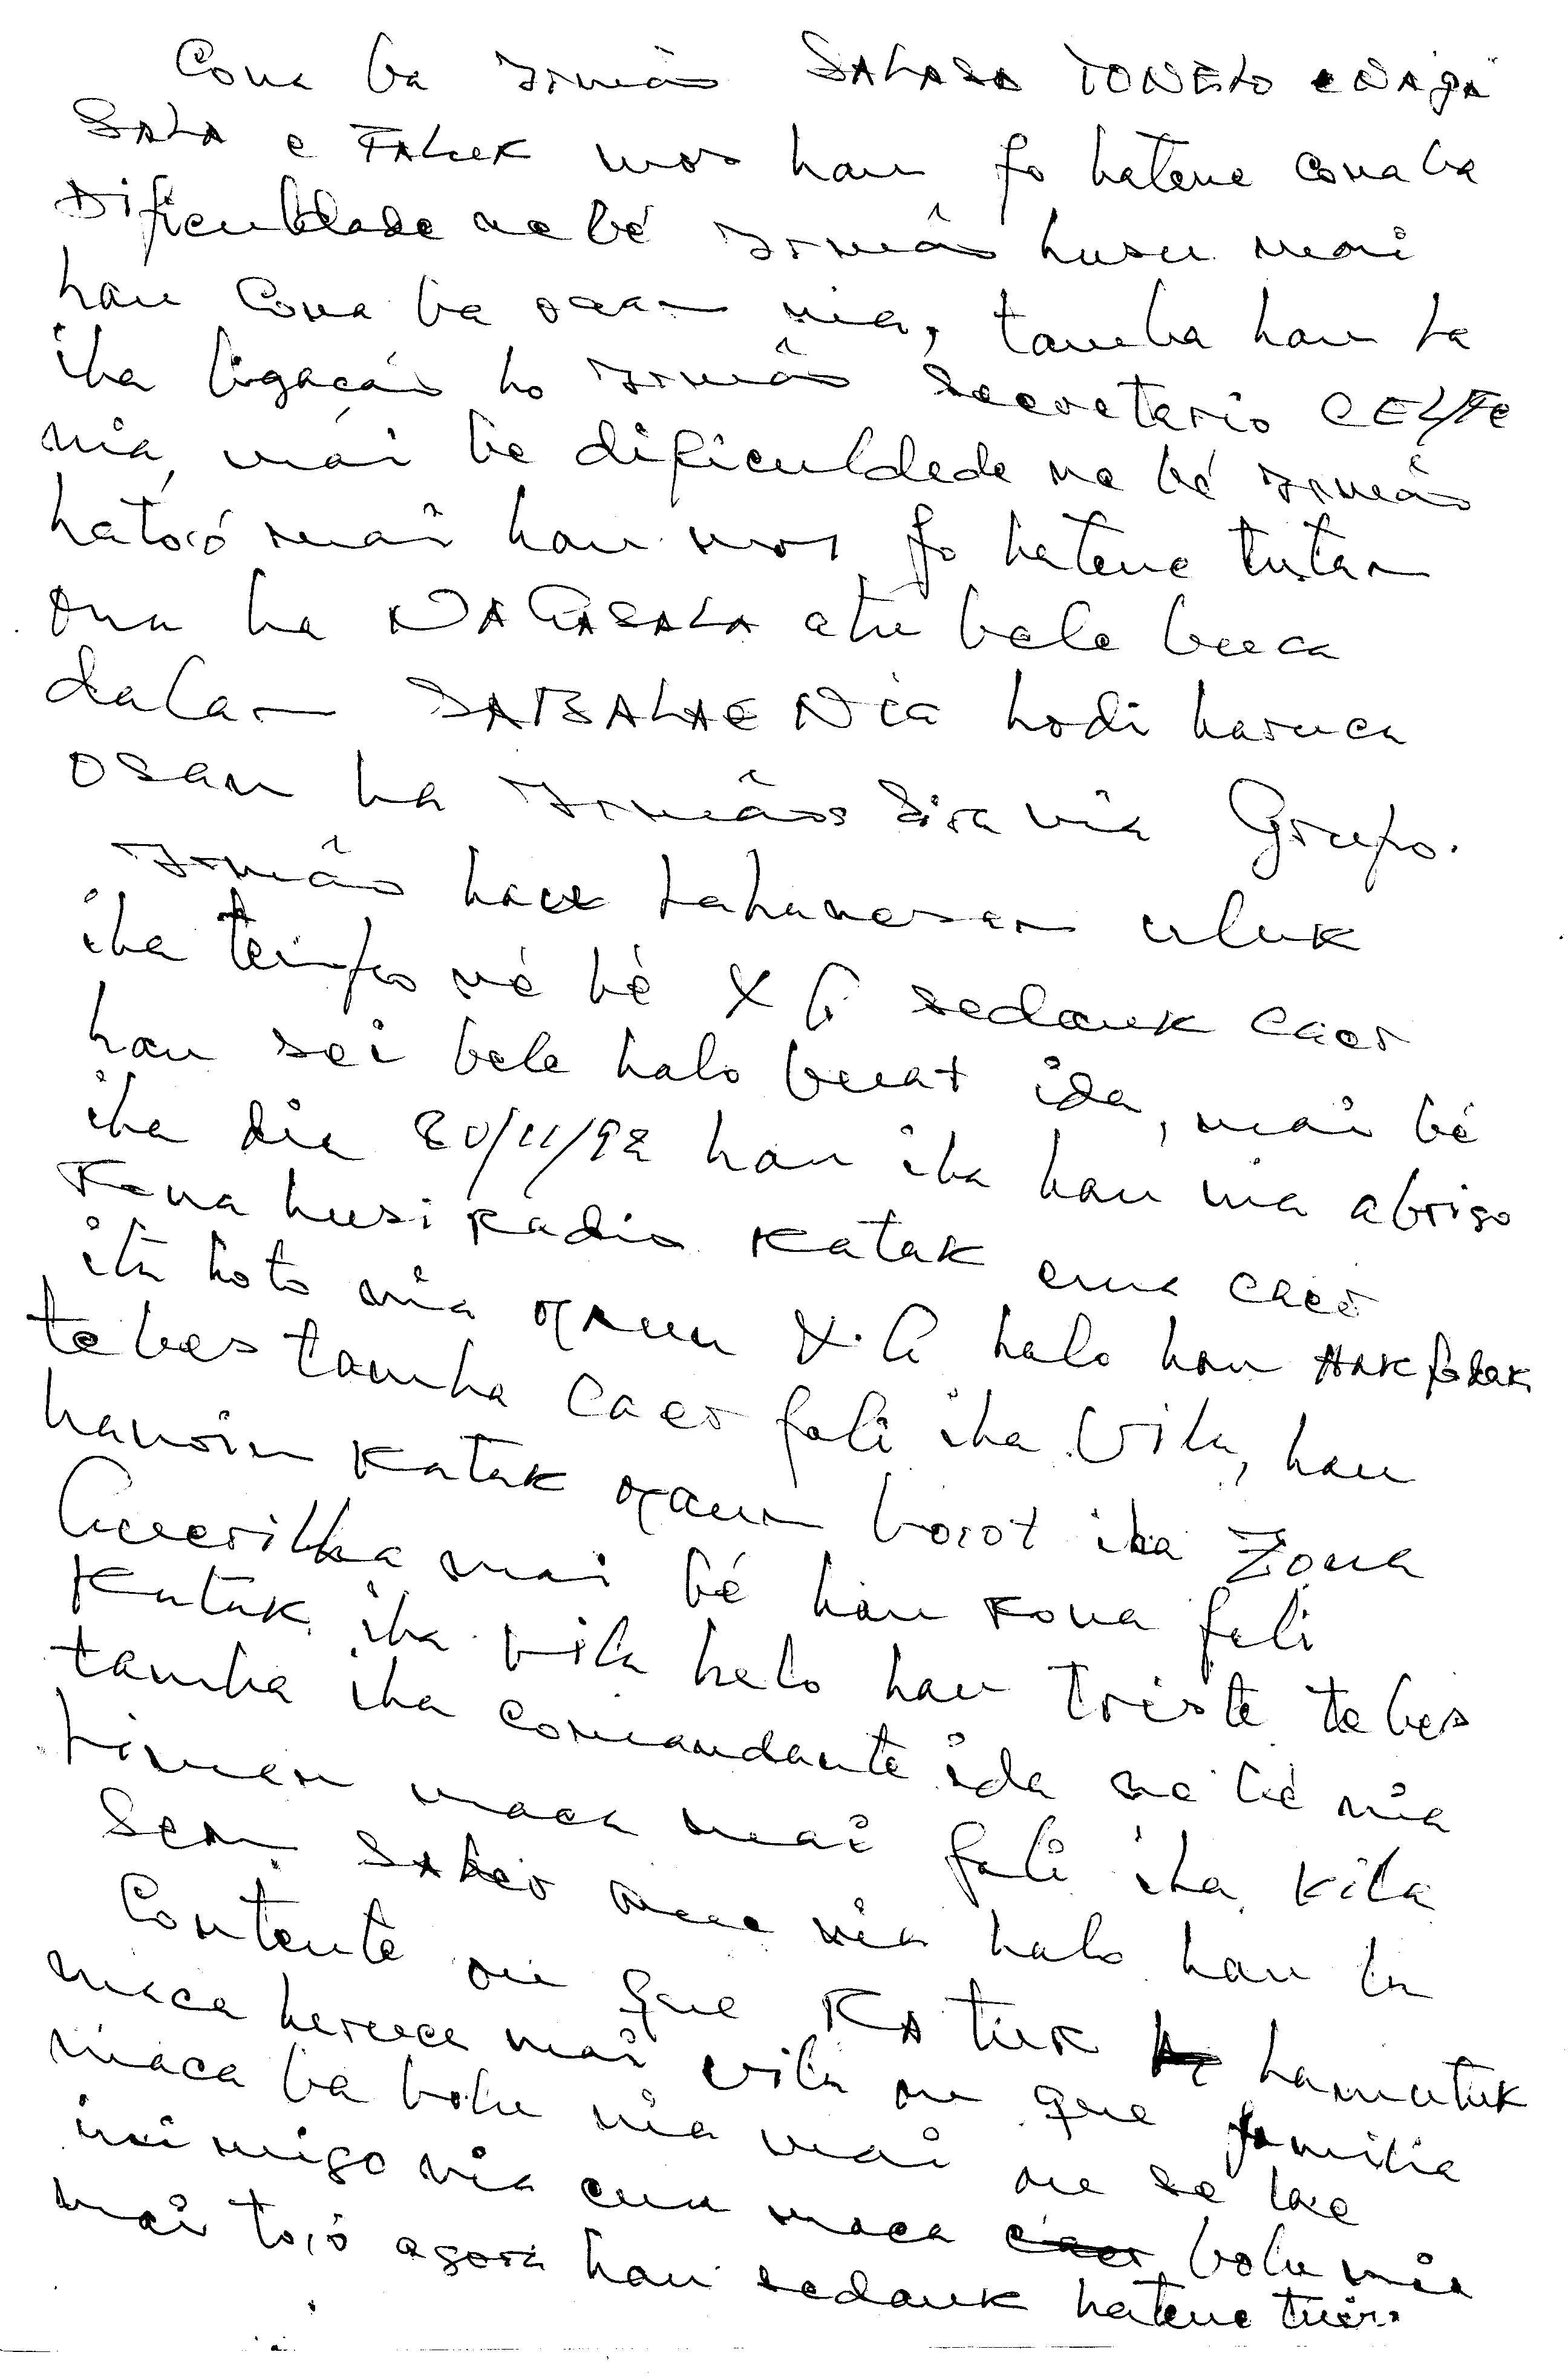 Cona ba Irmão SALASA TONELO e NAGA
SALA e FALUK mos hau fo hatene cona ba
Dificuldade ne bé Irmão husu mai
hau Cona ba osan nia, tamba hau la
iha ligação ho Irmão Secretario CEL/FC
nia, mái be dificuldade ne bé Irmão
ható,ó mai hau mos fo hatene tutan
ona ba NAGASALA atu bele buca
dalan SABALAE Nia hodi haruca
osan ba Irmãos Sira nia Grupo.
Irmão hau lahanesan uluk
iha tempo né bé X G sedauk caer
hau sei bele halo buat ida, mai bé
iha dia 20/11/92 hau iha hau nia abrigo
Rona husi Radio Katak ema caer
itа hoto nia maun X.G halo hau HAKfodak
tebes tamba caer fali iha Vila, hau
hanoin Katak maun borot iha Zona
Guerilha mai bé hau Rona fali
Katak iha vila halo hau triste tebes
tamba iha comandante ida ne bé nia
liman maca mai fali iha Vila
Sem saber nia halo hau la
Contente ou que KATUK hamutuk
maca haruca mai vila ou que familia
maca ba bolu nia mai ou se lae
inimigo nia ema maca bolu nia
mai to,ó agora hau sedauk hatene tuir.